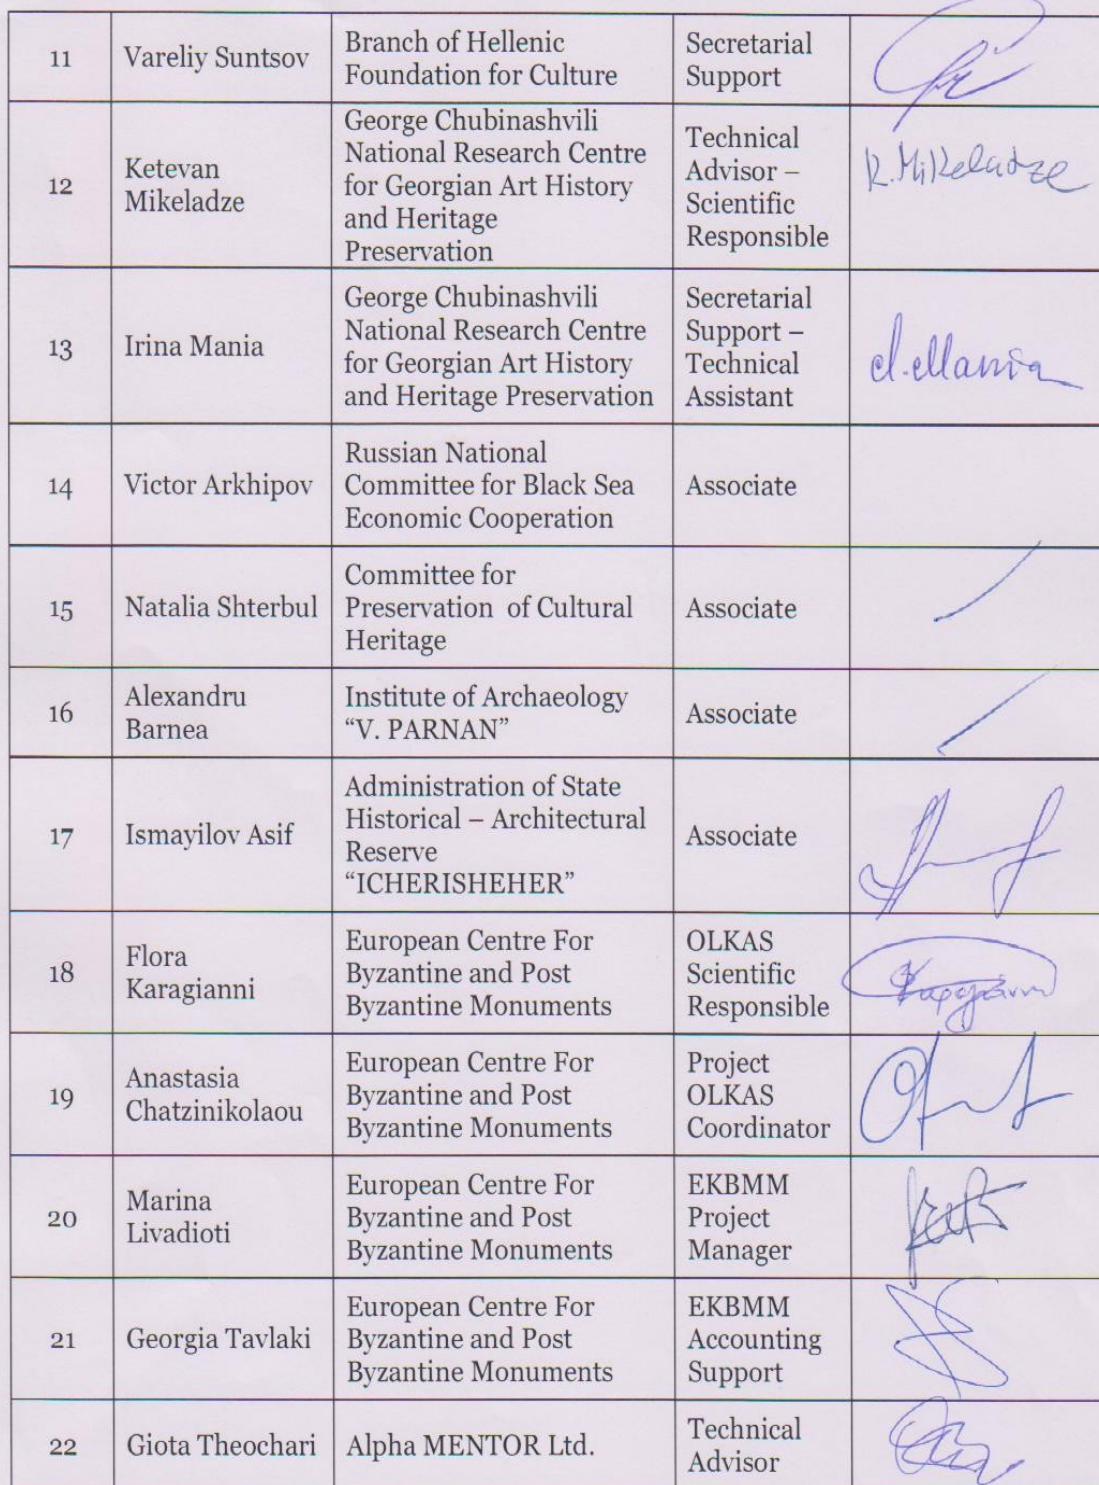 11
Vareliy Suntsov
Branch of Hellenic
Foundation for Culture
Secretarial
Support
12
Ketevan
Mikeladze
George Chubinashvili
National Research Centre
for Georgian Art History
and Heritage
Preservation
Technical
Advisor –
Scientific
Responsible
K. Mikeladze
13
Irina Mania
George Chubinashvili
National Research Centre
for Georgian Art History
and Heritage Preservation
Secretarial
Support –
Technical
Assistant
I. Mania
14
Victor Arkhipov
Russian National
Committee for Black Sea
Economic Cooperation
Associate
15
Natalia Shterbul
Committee for
Preservation of Cultural
Heritage
Associate
16
Alexandru
Barnea
Institute of Archaeology
“V. PARNAN”
Associate
17
Ismayilov Asif
Administration of State
Historical – Architectural
Reserve
“ICHERISHEHER”
Associate
18
Flora
Karagianni
European Centre For
Byzantine and Post
Byzantine Monuments
OLKAS
Scientific
Responsible
19
Anastasia
Chatzinikolaou
European Centre For
Byzantine and Post
Byzantine Monuments
Project
OLKAS
Coordinator
20
Marina
Livadioti
European Centre For
Byzantine and Post
Byzantine Monuments
EKBMM
Project
Manager
21
Georgia Tavlaki
European Centre For
Byzantine and Post
Byzantine Monuments
EKBMM
Accounting
Support
22
Giota Theochari
Alpha MENTOR Ltd.
Technical
Advisor